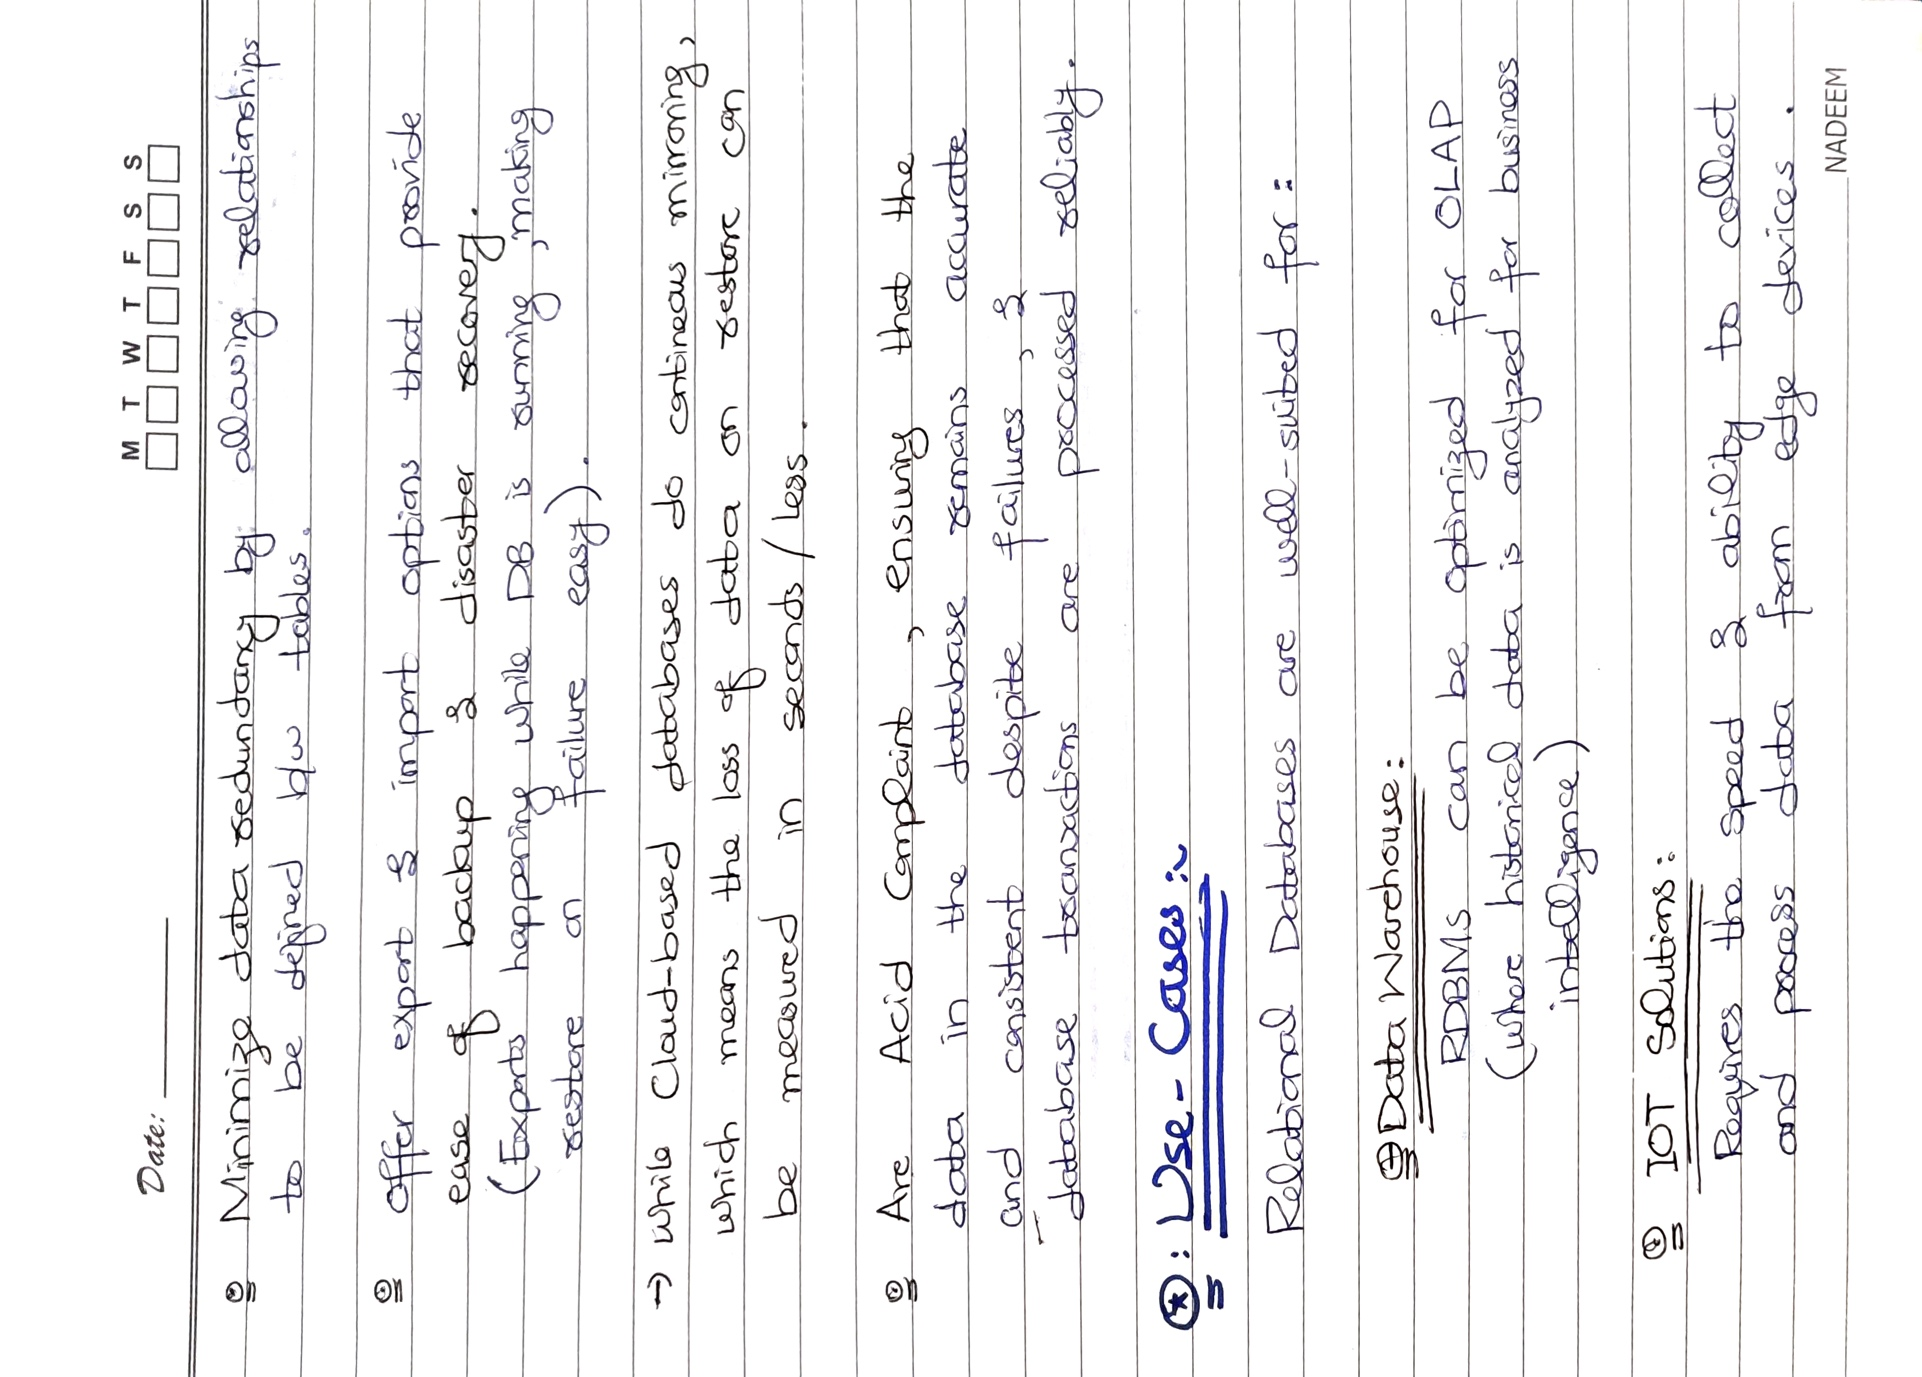 Date:
M T W T F S S
Minimize data redundancy by allowing relationships
to be defined b/w tables.
Offer export & import options that provide
ease of backup & disaster recovery.
(Exports happening while DB is running, making
restore on failure easy).
→ while Cloud-based databases do contineous mirroring,
which means the loss of data on restore can
be measured in seconds / less.
Are Acid Complaint, ensuring that the
data in the database remains accurate
and consistent despite failures, &
database transactions are processed reliably.
*: Use-Cases:~
Relational Databases are well-suited for:
Data Warehouse:
RDBMs can be optimized for OLAP
(where historical data is analyzed for business
intelligence)
IOT Solutions:
Requires the speed & ability to collect
and process data from edge devices.
NADEEM